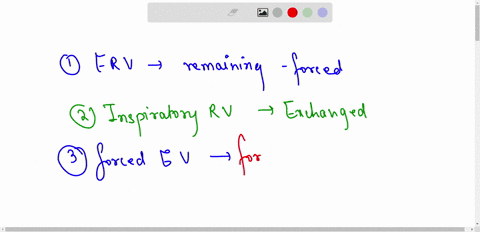 ① ERV → remaining - forced
② Inspiratory RV → Exchanged
③ forced EV → for